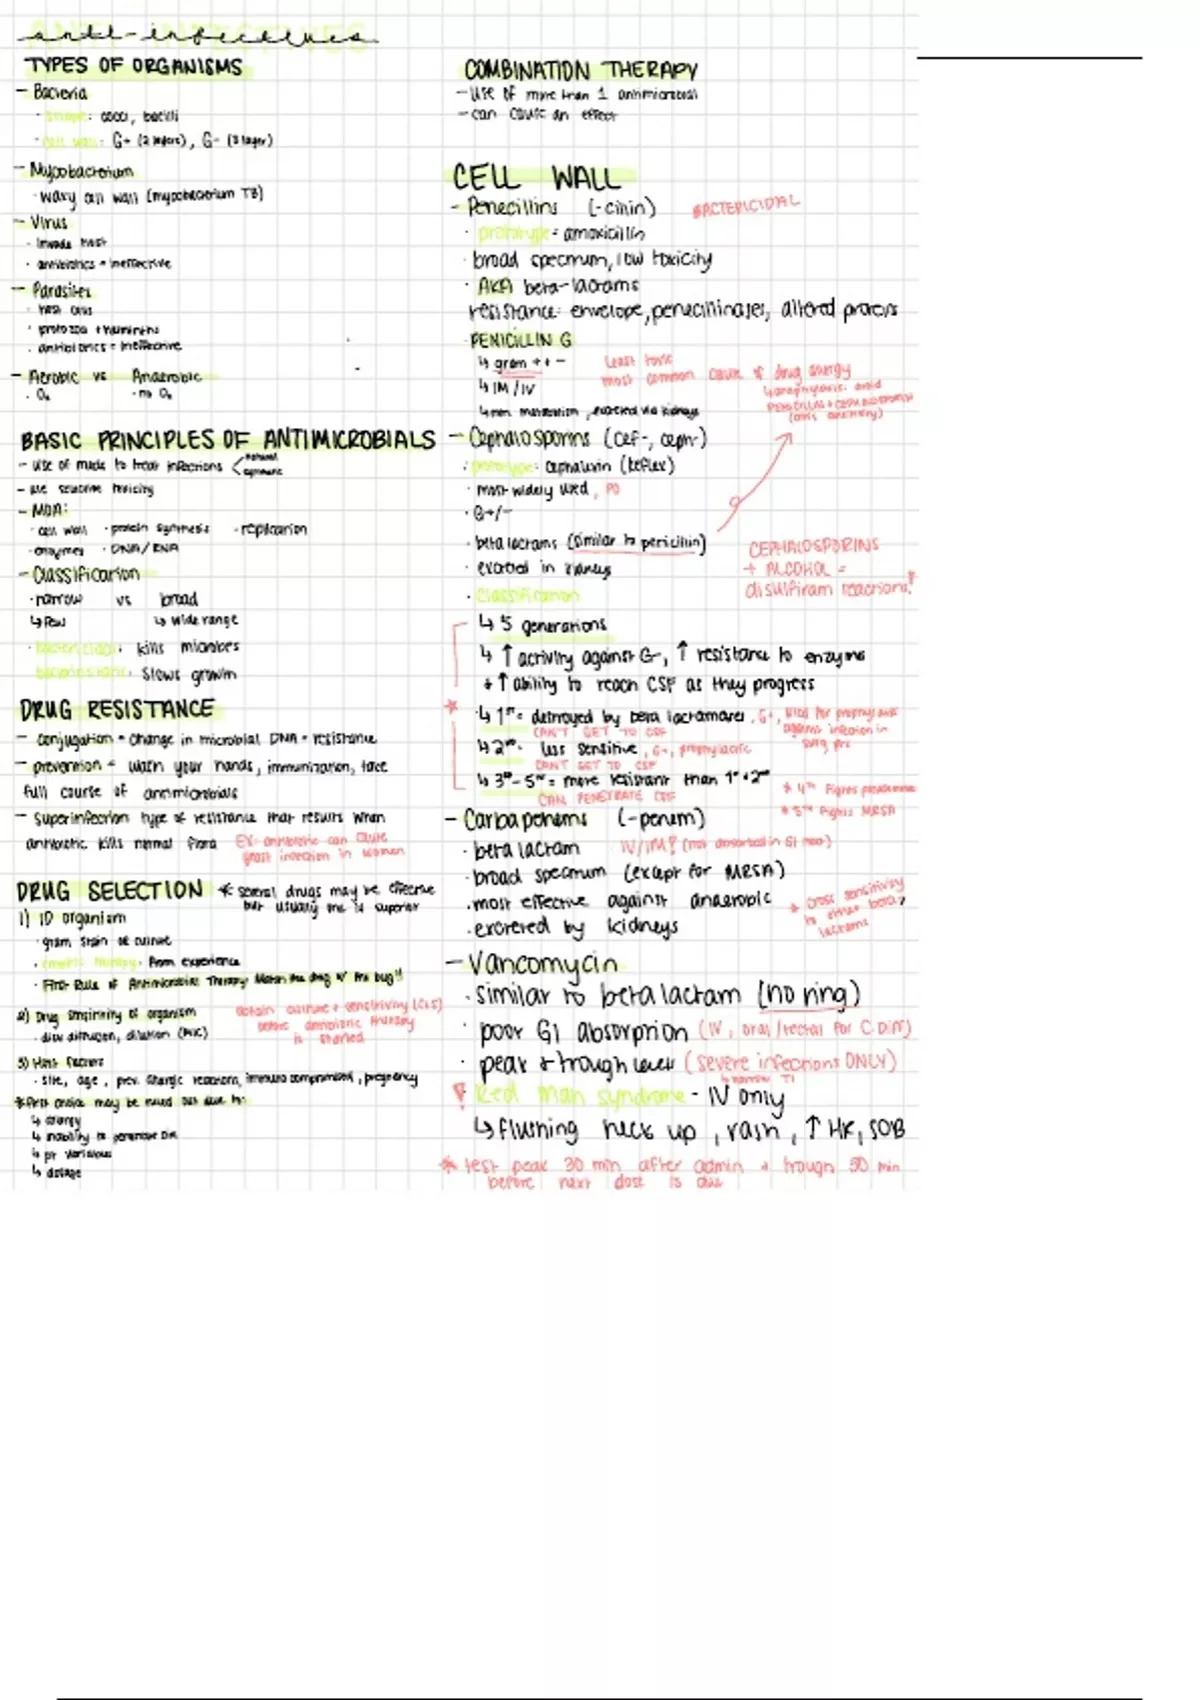 anti-infectives
TYPES OF ORGANISMS
- Bacteria
· shape: cocci, bacilli
· cell wall: G+ (2 layers), G- (3 layer)
- Mycobacterium
· waxy cell wall (mycobacterium TB)
- Virus
· invade host
· antibiotics = ineffective
- Parasites
· protozoa + helminths
· antibiotics = ineffective
- Aerobic vs Anaerobic
· O₂ · no O₂
BASIC PRINCIPLES OF ANTIMICROBIALS
- use of meds to treat infections < natural
- use selective toxicity
- MOA:
· cell wall · protein synthesis · replication
· enzymes · DNA/RNA
- Classification
· narrow vs broad
↳ few ↳ wide range
· bactericidal: kills microbes
bacteriostatic: slows growth
DRUG RESISTANCE
- conjugation = change in microbial DNA = resistance
- prevention = wash your hands, immunization, take
full course of antimicrobials
- superinfection type of resistance that results when
antibiotic kills normal flora EX: antibiotic can cause
yeast infection in women
DRUG SELECTION * several drugs may be effective
but usually one is superior
1) ID organism
· gram stain or culture
· empiric therapy: from experience
· First Rule of Antimicrobial Therapy: Match the drug w/ the bug!!
2) Drug sensitivity of organism
· disk diffusion, dilution (MIC)
obtain culture + sensitivity (C&S)
before antibiotic therapy
is started
3) Host factors
· site, age, prev. allergic reactions, immunocompromised, pregnancy
*first choice may be ruled out due to:
↳ allergy
↳ inability to penetrate
↳ pt variables
↳ dosage
COMBINATION THERAPY
- use of more than 1 antimicrobial
- can cause an effect
CELL WALL
- Penecillins (-cillin) BACTERICIDAL
· prototype = amoxicillin
· broad spectrum, low toxicity
· AKA beta-lactams
resistance: envelope, penecillinases, altered proteins
PENICILLIN G
↳ gram + + - Least toxic
↳ IM/IV most common cause of drug allergy
↳ anaphylaxis: avoid
↳ min. metabolism, excreted via kidneys
- Cephalosporins (cef-, ceph-)
· prototype: cephalexin (keflex)
· most widely used, PO
· G+/-
· beta lactams (similar to penicillin)
· excreted in kidneys
CEPHALOSPORINS
+ ALCOHOL =
disulfiram reactions!
· classification
↳ 5 generations
↳ ↑ activity against G-, ↑ resistance to enzyme
+ ↑ ability to reach CSF as they progress
* ↳ 1st = destroyed by beta lactamases, G+, used for prophylaxis
CAN'T GET TO CSF against infection in
surg pts
↳ 2nd- less sensitive, G-, prophylactic
CAN'T GET TO CSF
↳ 3rd-5th = more resistant than 1st + 2nd
CAN PENETRATE CSF
* 4th fights pseudomonas
* 5th fights MRSA
- Carbapenems (-penem)
· beta lactam IV/IM? (not absorbed in GI tract)
· broad spectrum (except for MRSA)
· most effective against anaerobic
· excreted by kidneys
* cross sensitivity
to other beta
lactams
- Vancomycin
· similar to beta lactam (no ring)
· poor GI absorption (IV, oral/rectal for C. Diff)
· peak + trough level (severe infections ONLY)
↳ narrow TI
! Red man syndrome - IV only
↳ flushing neck up, rash, ↑ HR, SOB
* test peak 30 min after admin + trough 30 min
before next dose is due